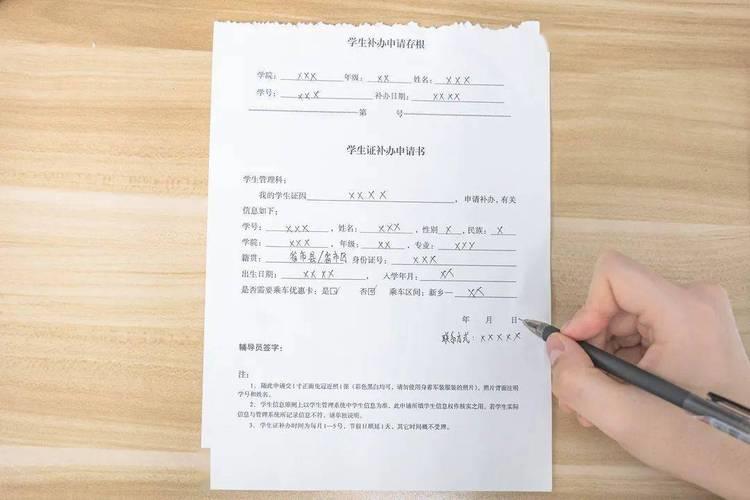 学生补办申请存根
学院：xxx 年级：xx 姓名：xxx
学号：xxx 补办日期：xxxx
第 号
学生证补办申请书
学生管理科：
我的学生证因 xxxx ，申请补办，有关
信息如下：
学号：xxx，姓名：xxx，性别x，民族：x
学院：xxx，年级：xx，专业：xxx
籍贯：省市县/省市区 身份证号：xxx
出生日期：xxxx，入学年月：xx
是否需要乘车优惠卡：是☑ 否☑ 乘车区间：新乡—xx
年 月 日
联系方式：xxxxx
辅导员签字：
注：
1、随此申请交1寸正面免冠近照1张（彩色黑白均可，请勿使用身着军装服装的照片），照片背面注明
学号和姓名。
2、学生信息原则上以学生管理系统中学生信息为准，此申请所填学生信息权作核实之用。若学生实际
信息与管理系统所记录信息不符，请单独说明。
3、学生证补办时间为每月1—5号，节假日顺延1天，其它时间概不受理。